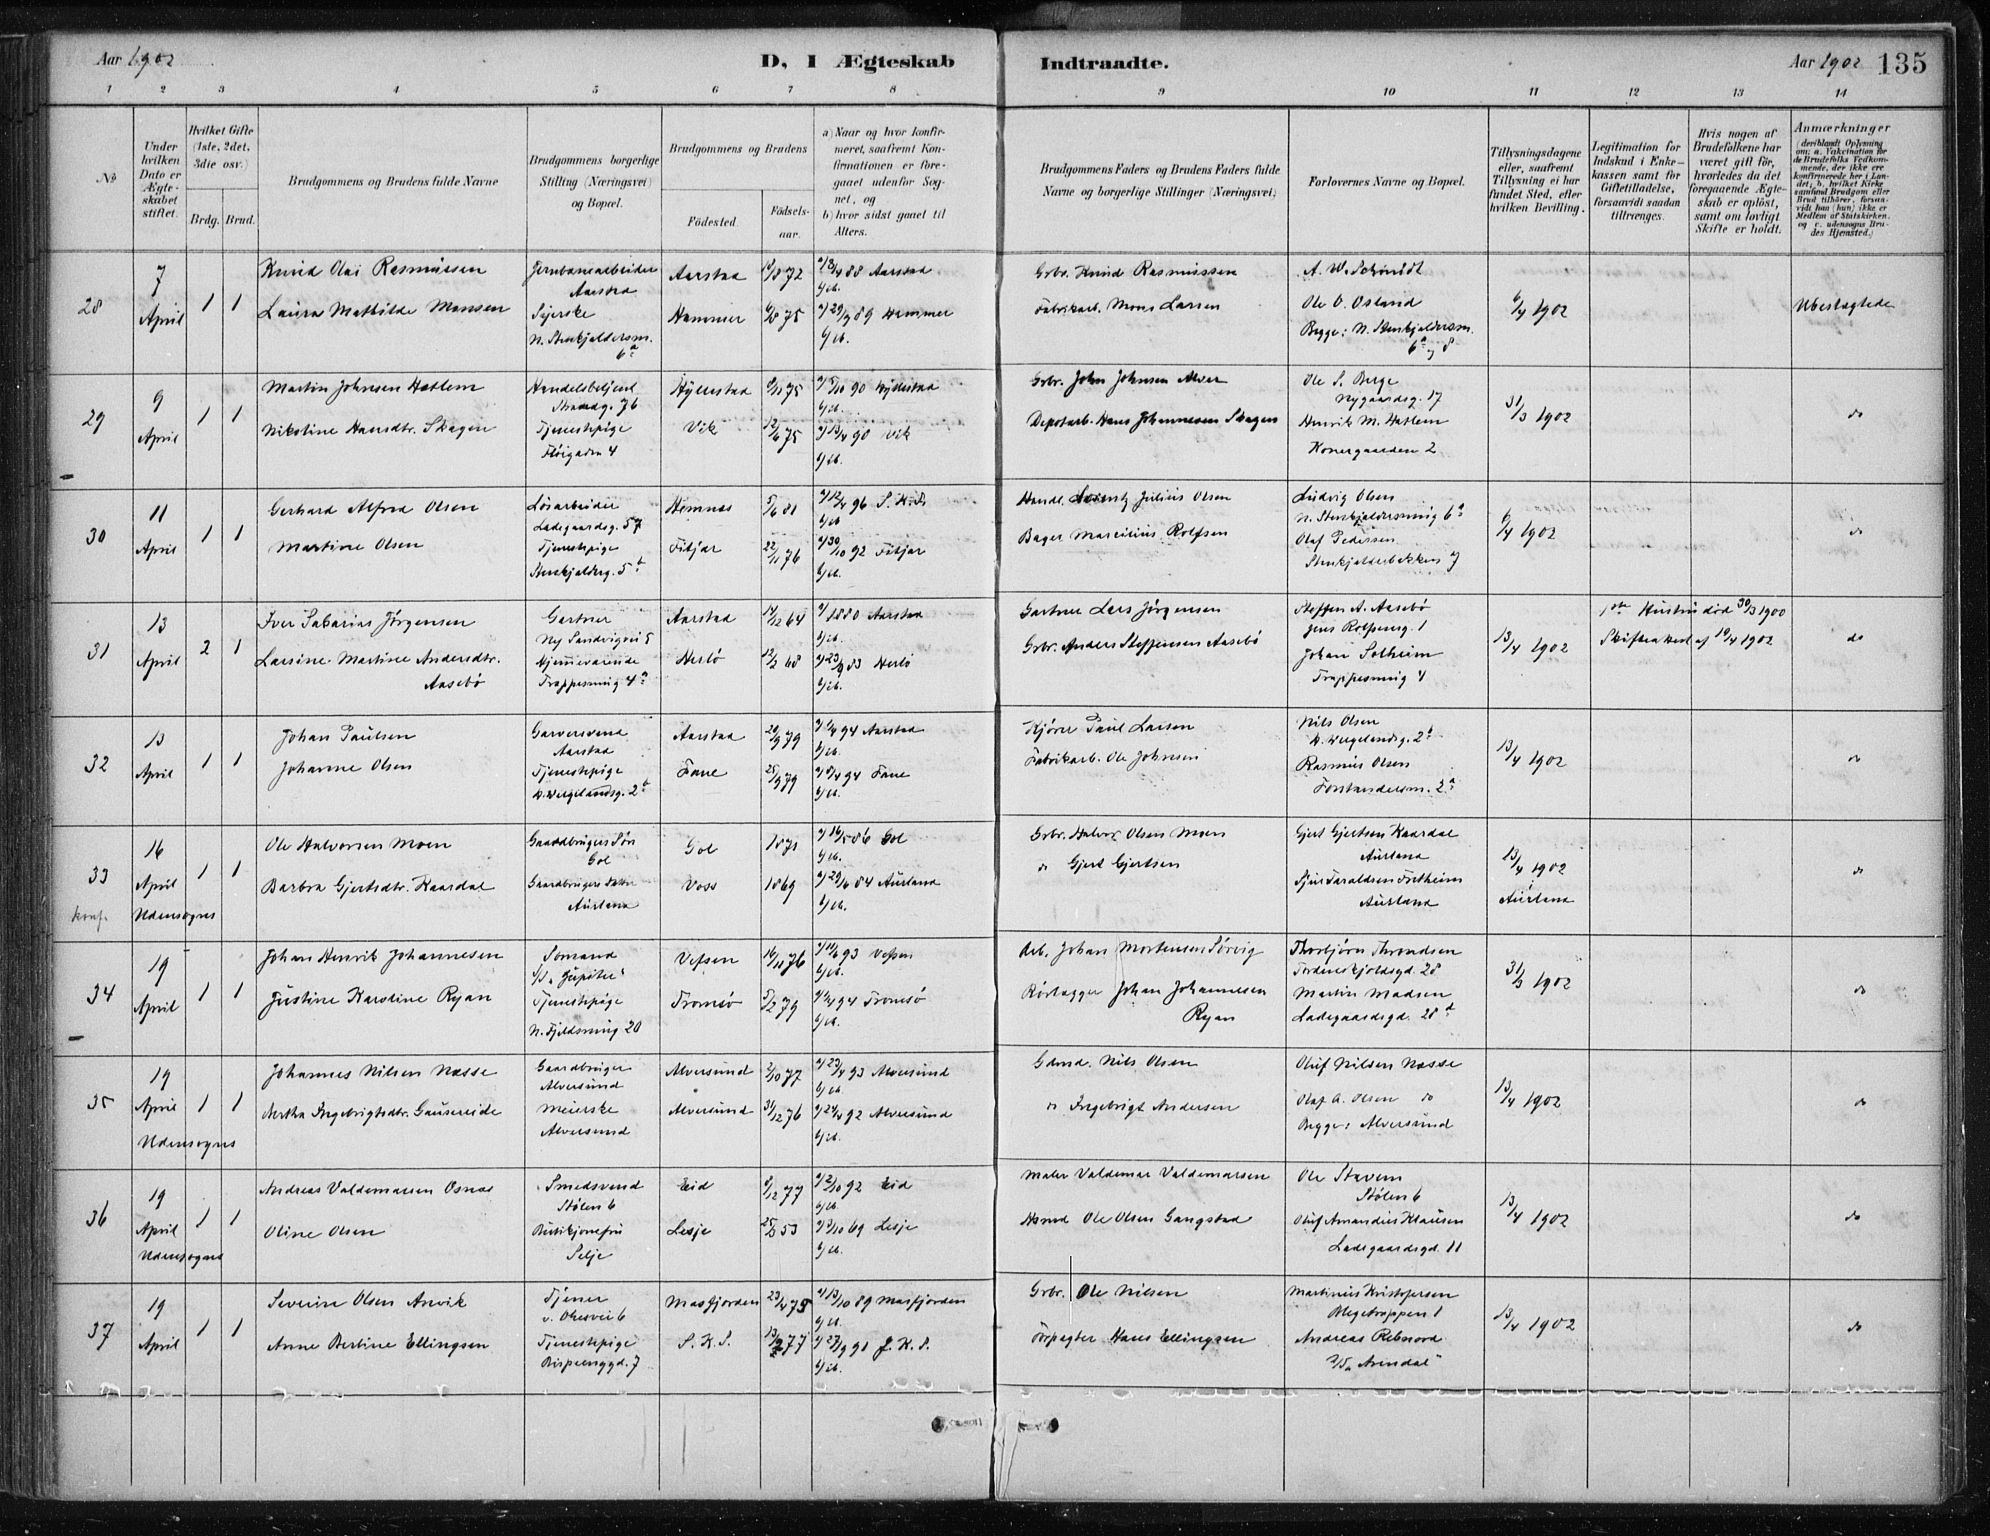 Aar 1902
D, I Ægteskab
Indtraadte.
Aar 1902
135
1 2 3 4 5 6 7 8 9 10 11 12 13 14
No
Under hvilken Dato er Ægteskabet stiftet.
Hvilket Gifte (1ste, 2det, 3die osv.)
Brdg. Brud.
Brudgommens og Brudens fulde Navne
Brudgommens borgerlige Stilling (Næringsvei) og Bopæl.
Brudgommens og Brudens
Födested.
Födselsaar.
a) Naar og hvor konfirmeret, saafremt Konfirmationen er foregaaet udenfor Sognet, og
b) hvor sidst gaaet til Alters.
Brudgommens Faders og Brudens Faders fulde Navne og borgerlige Stillinger (Næringsvei)
Forlovernes Navne og Bopæl.
Tillysningsdagene eller, saafremt Tillysning ei har fundet Sted, efter hvilken Bevilling.
Legitimation for Indskud i Enkekassen samt for Giftetilladelse, forsaavidt saadan tiltrænges.
Hvis nogen af Brudefolkene har været gift för, hvorledes da det foregaaende Ægteskab er oplöst, samt om lovligt Skifte er holdt.
Anmærkninger (deriblandt Oplysning om: a. Vakcination for de Brudefolks Vedkommende, der ikke ere konfirmerede her i Landet; b. hvilket Kirkesamfund Brudgom eller Brud tilhörer, forsaavidt han (hun) ikke er Medlem af Statskirken, og c. udensogns Brudes Hjemsted.)
28
7 April
1 1
Knud Olai Rasmussen
Laura Mathilde Monsen
Jernbanearbeider
Aarstad
Syerske
N. Stenkjeldersm.
6a
Aarstad
Hammer
72
6/8 75
88 Aarstad
b/ ib.
89 Hammer
b/ ib.
Grbr. Knud Rasmussen
Fabrikarb. Mons Larsen
A. W. Schmidt
Ole O. Osland
Begge: N. Stenkjeldersm.
6a og 8
6/4 1902
Ubeslægtede
29
9 April
1 1
Martin Johnsen Hatlem
Nikoline Hansdtr. Skagen
Handelsbetjent
Strandg. 76
Tjenestepige
Fløigaden 4
Hyllestad
Vik
75
12/6 75
90 Hyllestad
b/ ib.
90 Vik
b/ ib.
Grbr. John Johnsen Alver
Depotarb. Hans Johannesen Skagen
Ole S. Berge
Nygaardsg. 17
Henrik M. Hatlem
Konergaarden 2
31/3 1902
do
30
11 April
1 1
Gerhard Alfred Olsen
Martine Olsen
Løsarbeider
Ladegaardsg. 57
Tjenestepige
Stenkjelderg. 5b
Hemnes
Fitjar
5/6 81
22/11 76
a/ 12/4 96 S. K. S.
b/ ib.
a/ 30/10 92 Fitjar
b/ ib.
Handl. Lorentz Julius Olsen
Bager Marcilius Rolfsen
Ludvig Olsen
N. Stenkjeldersmug 6a
Olaf Pedersen
Stenkjelderbakken 7
6/4 1902
do
31
13 April
2 1
Iver Sakarias Jörgensen
Larsine Martine Andersdtr.
Aasebö
Gartner
Ny Sandvigsvei 5
Hjemmeværende
Trappesmug 4a
Aarstad
Herlö
14/12 64
12/2 68
1880 Aarstad
b/ ib.
83 Herlö
b/ ib.
Gartner Lars Jörgensen
Grbr. Anders Steffensen Aasebö
Steffen A. Aasebö
Jens Rolfsensg. 1
Johan Solheim
Trappesmug 4
13/4 1902
1ste Hustru død 30/3 1900
Skifteattest af 10/4 1902
do
32
13 April
1 1
Johan Paulsen
Johanne Olsen
Garversvend
Aarstad
Tjenestepige
H. Wergelandsg. 2b
Aarstad
Fane
20/9 79
25/9 79
94 Aarstad
b/ ib.
94 Fane
b/ ib.
Kjörer Paul Larsen
Fabrikarb. Ole Johnsen
Nils Olsen
H. Wergelandsg. 2b
Rasmus Olsen
2a
13/4 1902
do
33
konf.
16 April
Udensogns
1 1
Ole Halvorsen Moen
Barbra Gjertsdtr. Kaardal
Gaardbrugers Søn
Gol
Gaardbrugers Datter
Aurland
Gol
Voss
1871
1869
a/ 16/5 86 Gol
b/ ib.
84 Aurland
b/ ib.
Grbr. Halvor Olsen Moen
do Gjert Gjertsen
Gjert Gjertsen Kaardal
Aurland
Sjur Taraldsen Fretheim
Aurland
13/4 1902
Aurland
do
34
19 April
1 1
Johan Henrik Johannesen
Justine Karoline Ryan
Sømand
S/S „Jupiter“
Tjenestepige
N. Fjeldsmug 20
Vefsen
Tromsö
76
5/2 79
93 Vefsen
b/ ib.
94 Tromsö
b/ ib.
Arb. Johan Mortensen Sörvig
Rörlægger Johan Johannesen
Ryan
Thorbjörn Throndsen
Tordenskjoldsgd. 28
Martin Madsen
Ladegaardsgd. 28d
31/3 1902
do
35
19 April
Udensogns
1 1
Johannes Nilsen Nesse
Martha Ingebrigtsdtr. Gausereide
Gaardbruger
Alversund
Meierske
Alversund
Alversund
Alversund
2/10 77
31/12 76
a/ 23/4 93 Alversund
b/ ib.
a/ 24/4 92 Alversund
b/ ib.
Gdmd. Nils Olsen
do Ingebrigt Andersen
Oluf Nilsen Nesse
Olaf A. Olsen do
Begge: Alversund
13/4 1902
do
36
19 April
Udensogns
1 1
Andreas Valdemarsen Osnes
Oline Olsen
Smedsvend
Stölen 6
Selje
Eid
Lesje
77
53
a/ 2/10 92 Eid
b/ ib.
69 Lesje
b/ ib.
Maler Valdemar Valdemarsen
Ole Olsen Gangstad
Ole Stavem
Stölen 6
Oluf Amandius Klausen
Ladegaardsgd. 11
13/4 1902
do
37
19 April
1 1
Severin Olsen Anvik
Anne Bertine Ellingsen
Tjener
v. Olesvei 6
Tjenestepige
Bispeenggd. 7
Masfjorden
S. K. S.
23/4 75
77
a/ 13/10 89 Masfjorden
b/ ib.
a/ 27/9 91 J. K. S.
b/ ib.
Grbr. Ole Nilsen
Forpagter Hans Ellingsen
Martinius Kristofersen
Blegetrappen 1
Andreas Rebnord
D/S „Arendal“
13/4 1902
do